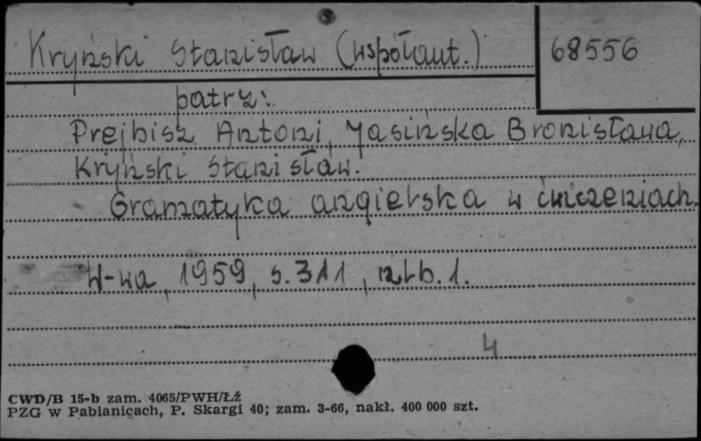 Kryński Stanisław (współaut.)
68556
patrz:
Prejbisz Antoni, Jasińska Bronisława,
Kryński Stanisław.
Gramatyka angielska w ćwiczeniach.
W-wa, 1959, s. 311, nlb. 1.
4
CWD/B 15-b zam. 4065/PWH/Łź
PZG w Pabianicach, P. Skargi 40; zam. 3-66, nakł. 400 000 szt.